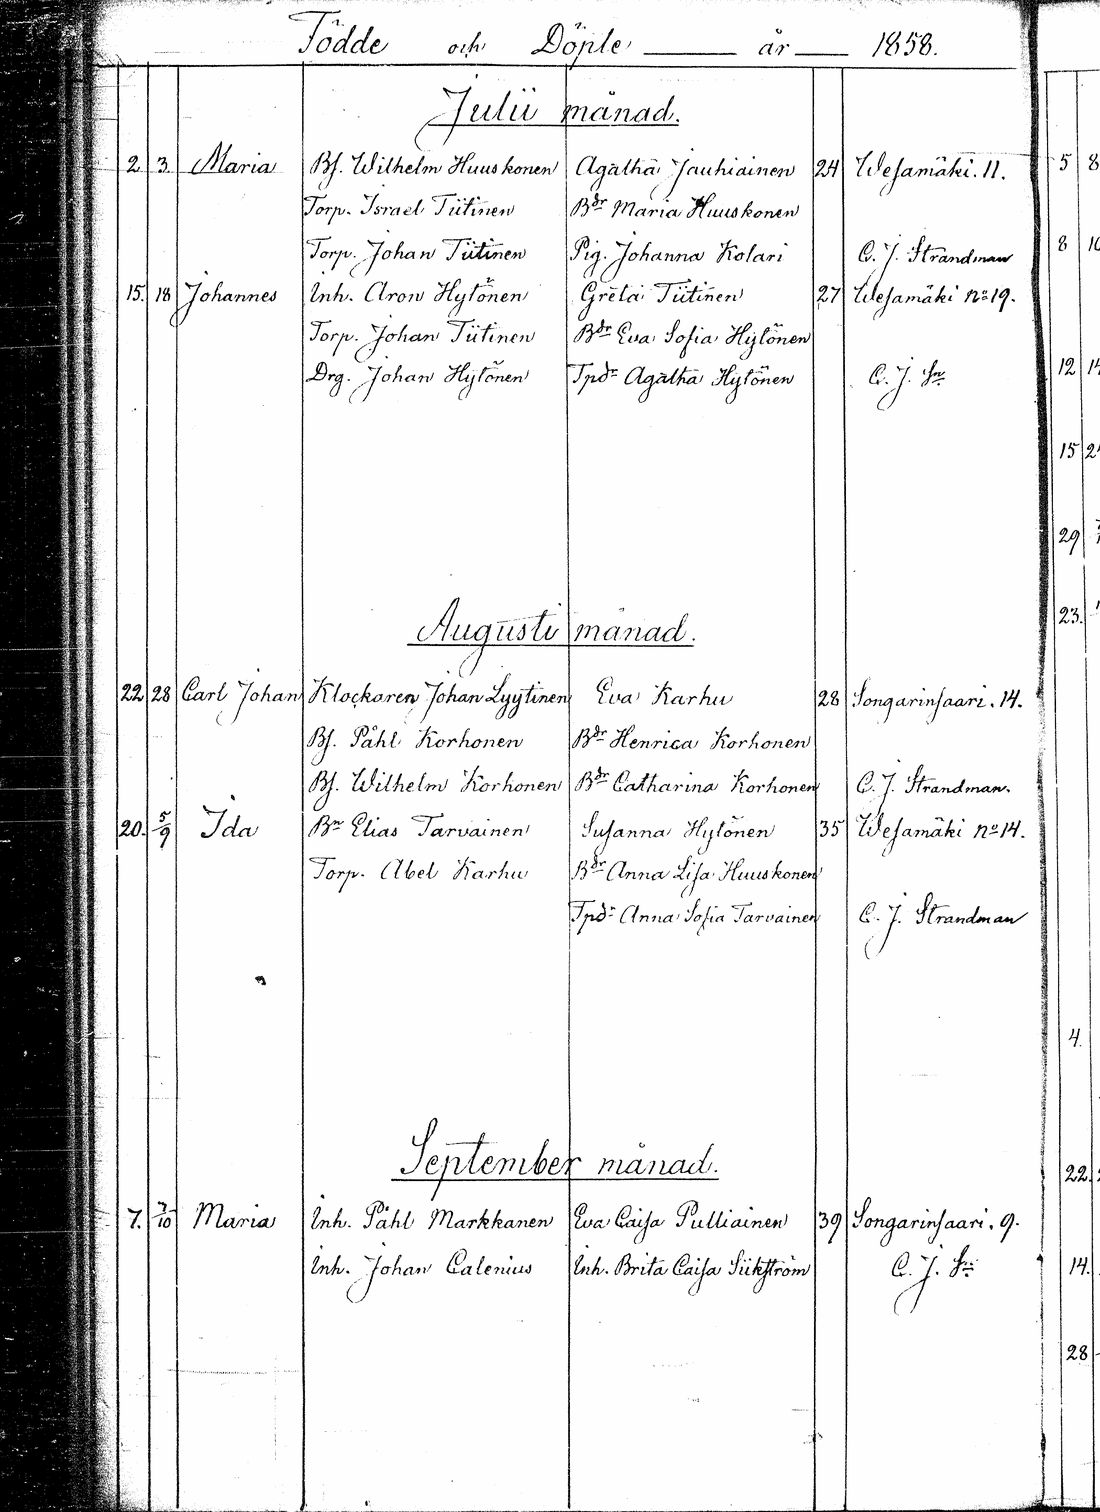 Födde och Döpte år 1858.
Julii månad.
2. 3. Maria Bf. Wilhelm Huuskonen Agatha Jauhiainen 24 Wesamäki. 11.
Torp. Israel Tiitinen Bdr Maria Huuskonen
Torp. Johan Tiitinen Pig. Johanna Kolari C. J. Strandman
15. 18 Johannes Inh. Aron Hytönen Greta Tiitinen 27 Wesamäki no 19.
Torp. Johan Tiitinen Bdr Eva Sofia Hytönen
Drg. Johan Hytönen Tpdr Agatha Hytönen C. J. Sn
Augusti månad.
22 28 Carl Johan Klockaren Johan Lyytinen Eva Karhu 28 Songarinsaari. 14.
Bf. Påhl Korhonen Bdr Henrica Korhonen
Bf. Wilhelm Korhonen Bdr Catharina Korhonen C. J. Strandman.
20. 5/9 Ida Bn Elias Tarvainen Susanna Hytönen 35 Wesamäki no 14.
Torp. Abel Karhu Bdr Anna Lisa Huuskonen
Tpdr Anna Sofia Tarvainen C. J. Strandman
September månad.
7. 7/10 Maria Inh. Påhl Markkanen Eva Caisa Pulliainen 39 Songarinsaari. 9.
Inh. Johan Calenius Inh. Brita Caisa Siikström C. J. Sn
5 8
8 10
12 14
15
29
23.
4.
22.
14.
28